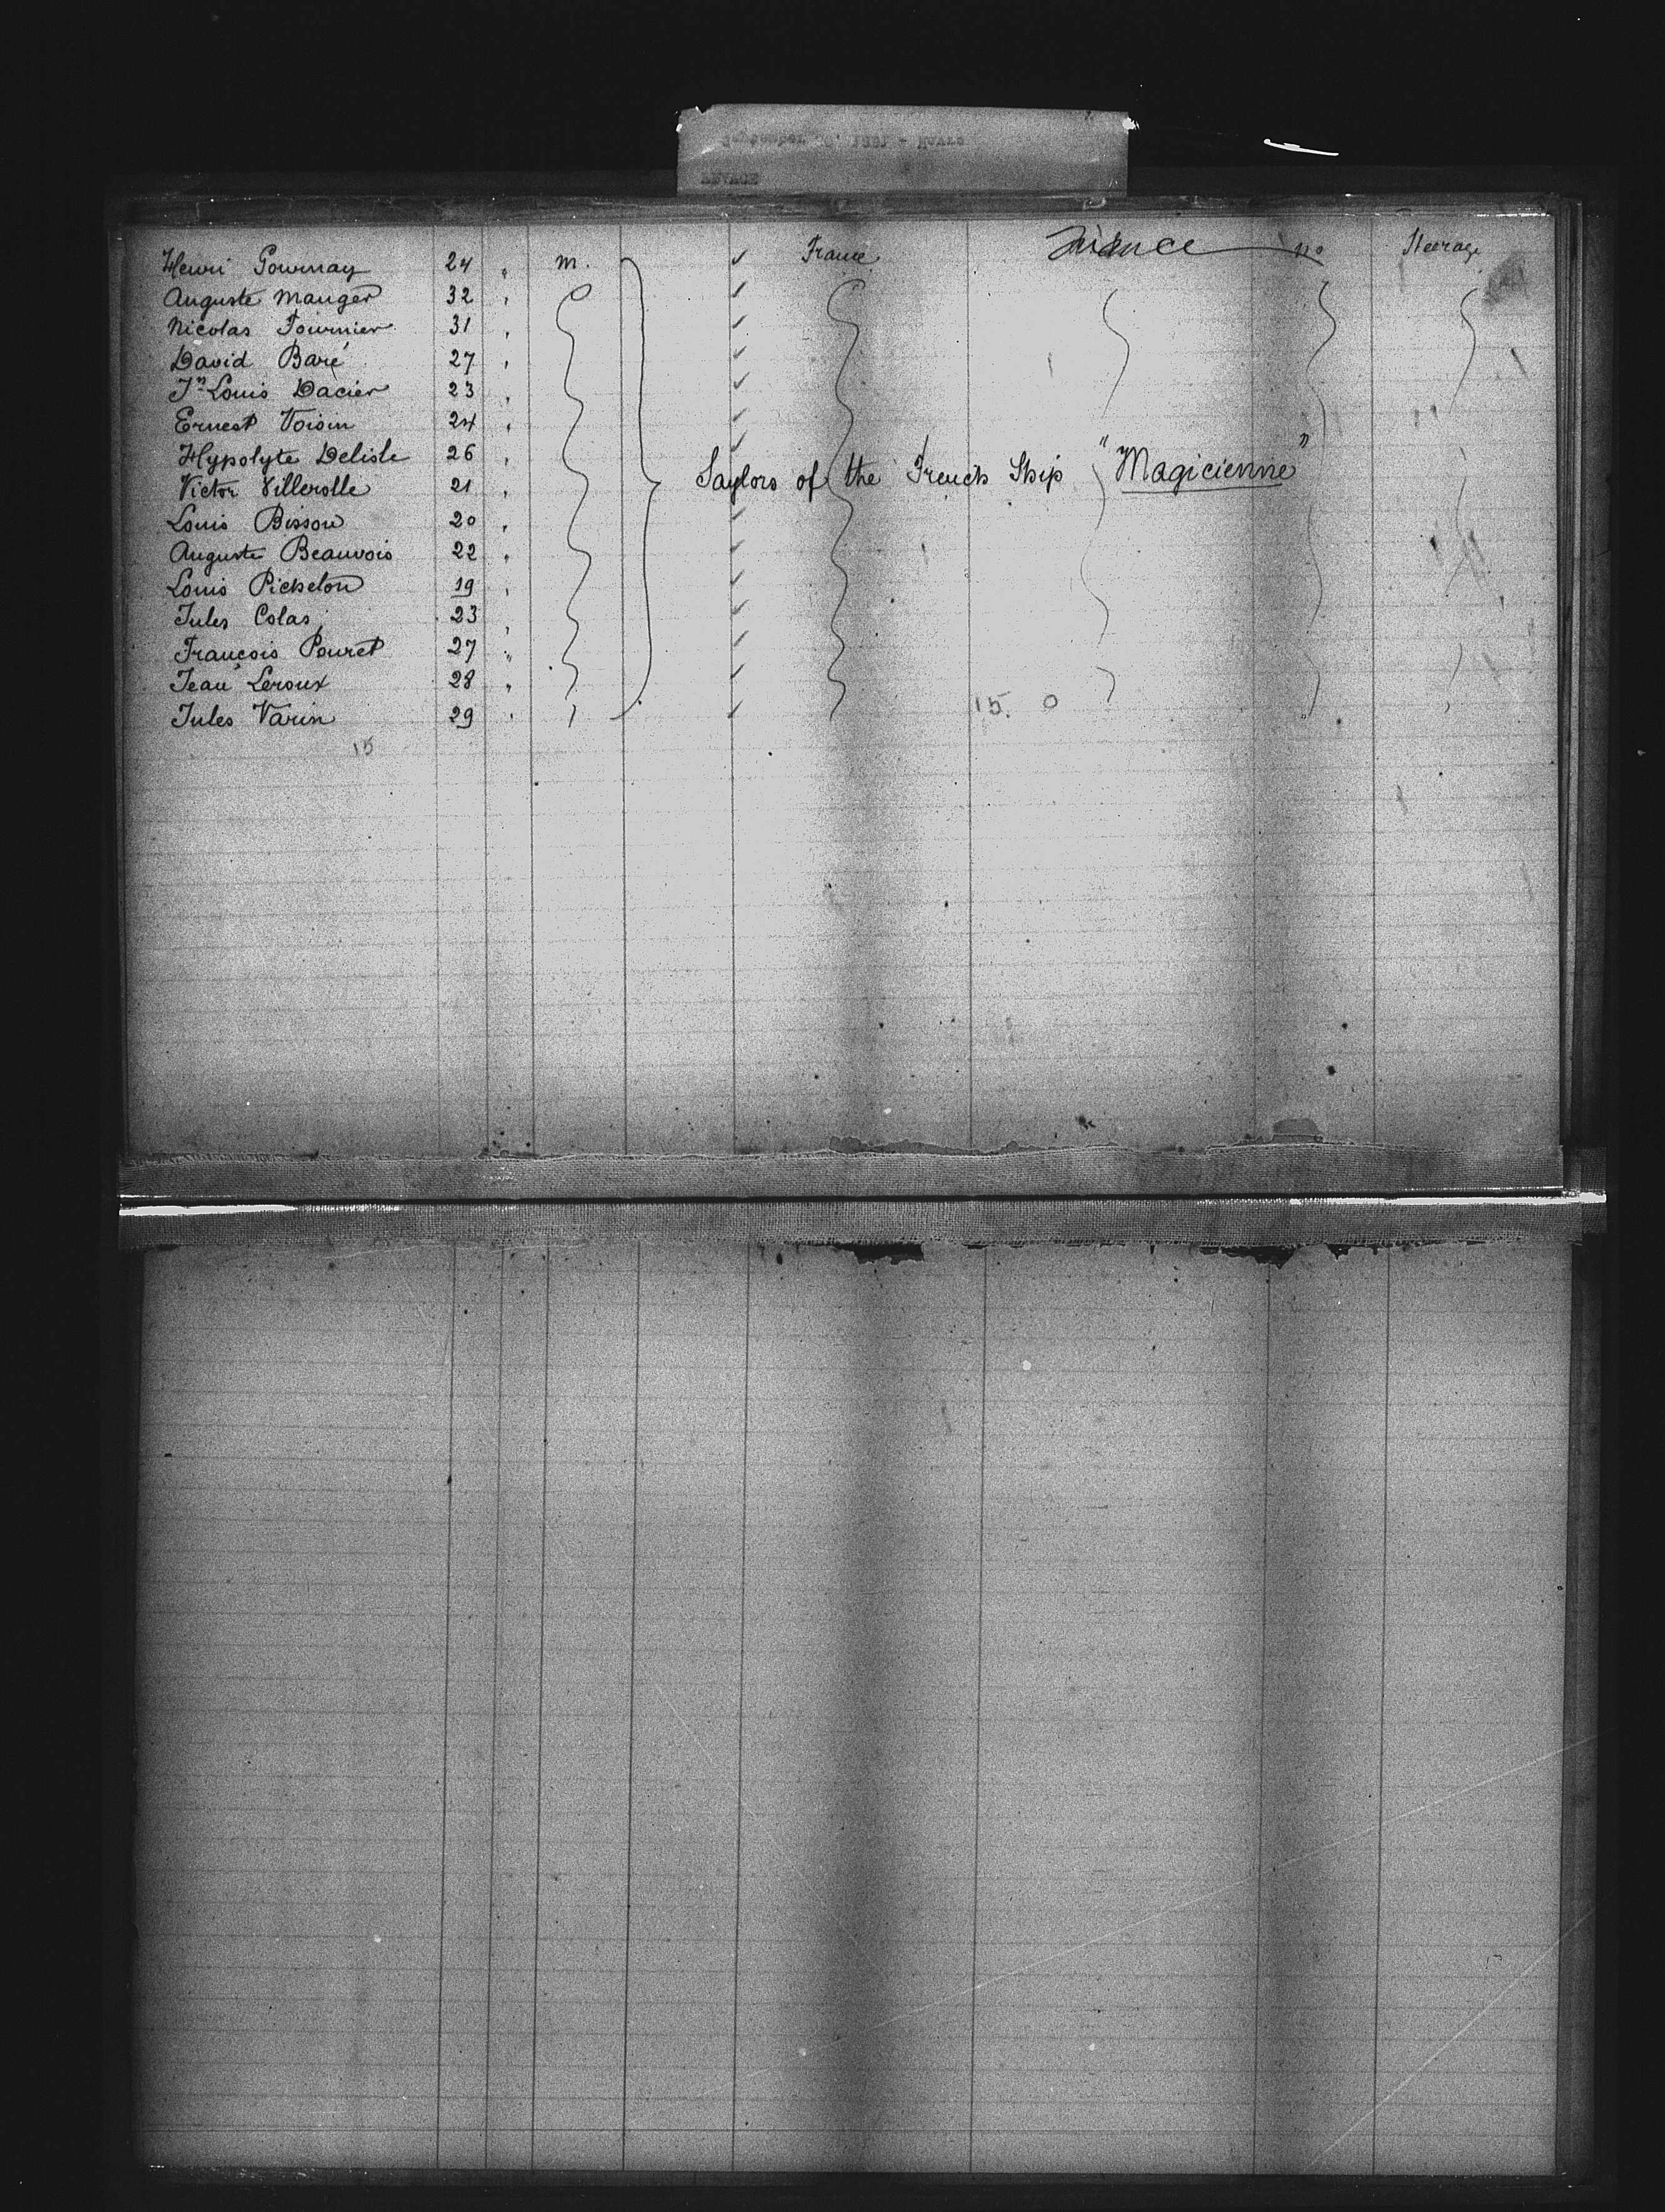 Henri Gournay 24 " m. ✓ France France no Steerage
Auguste Manger 32 "
Nicolas Fournier 31 "
David Baré 27 "
Jn Louis Dacier 23 "
Ernest Voisin 24 "
Hypolyte Delisle 26 "
Saylors of the French Ship "Magicienne"
Victor Villerolle 21 "
Louis Bisson 20 "
Auguste Beauvois 22 "
Louis Picheton 19 "
Jules Colas 23 "
François Pouret 27 "
Jean Leroux 28 "
Jules Varin 29 "
15. 0
15